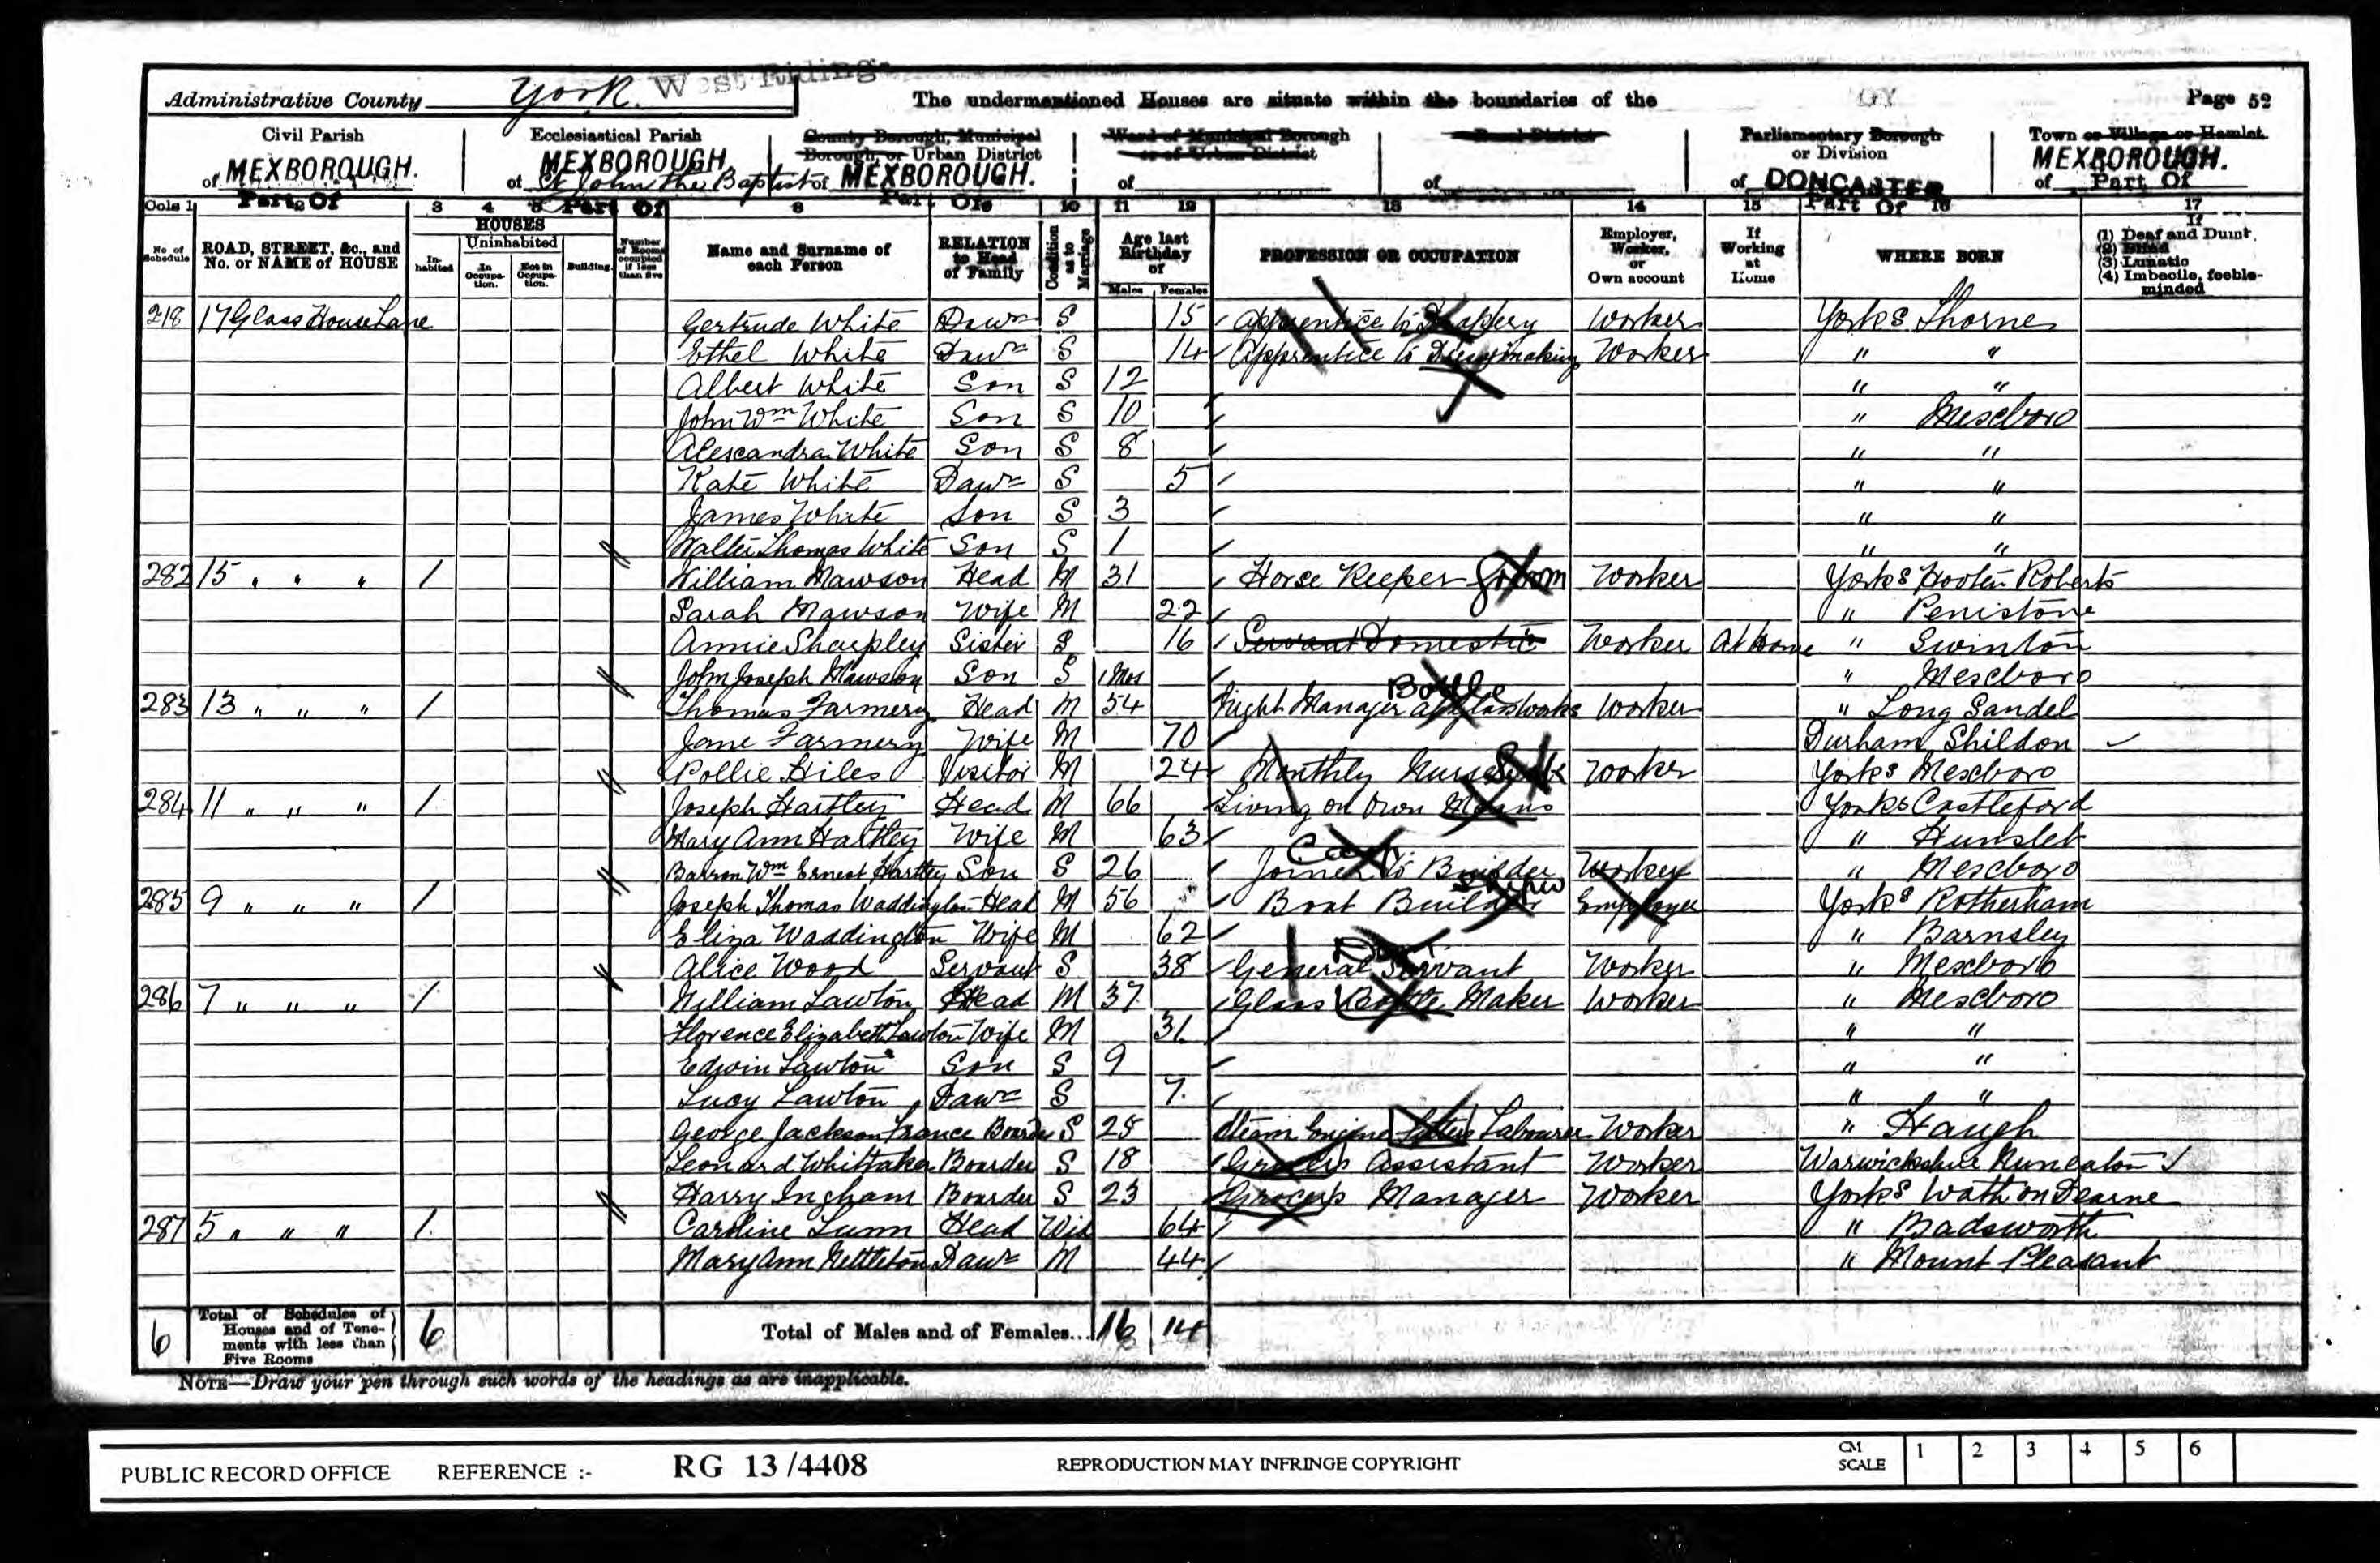 Administrative County York. West Riding
The undermentioned Houses are situate within the boundaries of the
Page 52
Civil Parish
of MEXBOROUGH.
Part Of
Ecclesiastical Parish
MEXBOROUGH.
of St John the Baptist
Part Of
County Borough, Municipal
Borough, or Urban District
of MEXBOROUGH.
Part Of
Ward of Municipal Borough
or of Urban District
of
Rural District
of
Parliamentary Borough
or Division
of DONCASTER
Part Of
Town or Village or Hamlet
MEXBOROUGH.
of Part Of
Cols 1 2 3 4 5 8 10 11 12 13 14 15 16 17
No. of Schedule
ROAD, STREET, &c., and No. or NAME of HOUSE
HOUSES
Inhabited
Uninhabited
In Occupation.
Not in Occupation.
Building.
Number of Rooms occupied if less than five
Name and Surname of each Person
RELATION to Head of Family
Condition as to Marriage
Age last Birthday of
Males Females
PROFESSION OR OCCUPATION
Employer, Worker, or Own account
If Working at Home
WHERE BORN
If
(1) Deaf and Dumb
(2) Blind
(3) Lunatic
(4) Imbecile, feeble-minded
218 17 Glass House Lane Gertrude White Dawr S 15 Apprentice to Drapery Worker Yorks Thorne
Ethel White Dawr S 14 Apprentice to Dressmaking Worker " "
Albert White Son S 12 " "
John Wm White Son S 10 " Mexboro
Alexandra White Son S 8 " "
Kate White Dawr S 5 " "
James White Son S 3 " "
Walter Thomas White Son S 1 " "
282 15 " " " 1 William Mawson Head M 31 Horse Keeper Groom Worker Yorks Hooten Roberts
Sarah Mawson Wife M 22 " Penistone
Annie Sharpley Sister S 16 Servant Domestic Worker At home " Swinton
John Joseph Mawson Son S 1 Mos " Mexboro
283 13 " " " 1 Thomas Farmery Head M 54 Night Manager at Glassworks Bottle Worker " Long Sandel
Jane Farmery Wife M 70 Durham, Shildon
Pollie Hiles Visitor M 24 Monthly Nurse Worker Yorks Mexboro
284 11 " " " 1 Joseph Hartley Head M 66 Living on Own Means Yorks Castleford
Mary Ann Hartley Wife M 63 " Hunslet
Barron Wm Ernest Hartley Son S 26 Joiner to Builder Worker " Mexboro
285 9 " " " 1 Joseph Thomas Waddington Head M 56 Boat Builder Employer Yorks Rotherham
Eliza Waddington Wife M 62 " Barnsley
Alice Wood Servant S 38 General Servant Dom. Worker " Mexboro
286 7 " " " 1 William Lawton Head M 37 Glass Bottle Maker Worker " Mexboro
Florence Elizabeth Lawton Wife M 31 " "
Edwin Lawton Son S 9 " "
Lucy Lawton Dawr S 7 " "
George Jackson France Boarder S 25 Steam Engine Fitters Labourer Worker " Haugh
Leonard Whittaker Boarder S 18 Grocers Assistant Worker Warwickshire Nuneaton
Harry Ingham Boarder S 23 Grocers Manager Worker Yorks Wath on Dearne
287 5 " " " 1 Caroline Lunn Head Wid 64 " Badsworth
Mary Ann Nettleton Dawr M 44 " Mount Pleasant
6 Total of Schedules of Houses and of Tenements with less than Five Rooms 6 Total of Males and of Females... 16 14
NOTE—Draw your pen through such words of the headings as are inapplicable.
PUBLIC RECORD OFFICE REFERENCE :- RG 13/4408 REPRODUCTION MAY INFRINGE COPYRIGHT CM SCALE 1 2 3 4 5 6